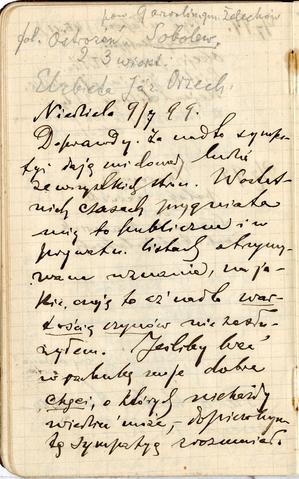 pow. Garwolin gm. Żelechów
fol. Ostrożeń Sobolew,
2 3 wiorst.
Elżbieta Orzech.
Niedziela 9/7 99.
Doprawdy. Za nadto sympa-
tyi dają mi dowody ludzie
ze wszystkich stron. W ostat-
nich czasach przygniata
mię to publiczne i w
prywatn. listach otrzymy-
wane uznanie, na ja-
kie, mają to coś nadto war-
tością czynów nie zasłu-
żyłem. Jeśliby wziąć
w rachubę moje dobre
chęci, o których nie każdy
wiedzieć może, dopiero bym
tę sympatyę rozumiał.